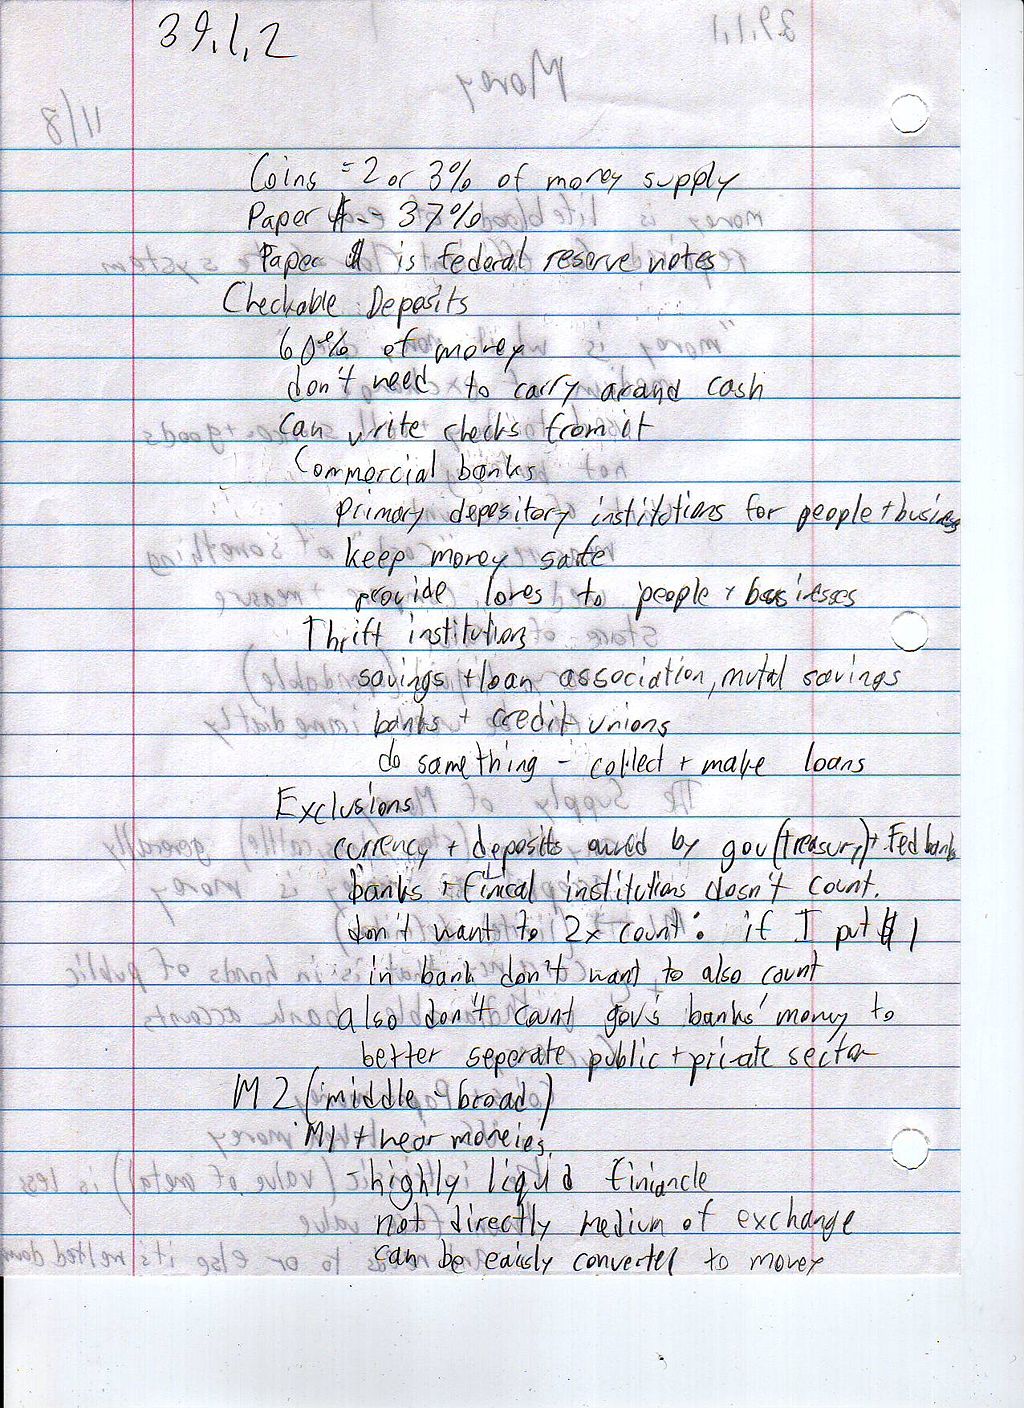 39.1.2
Coins = 2 or 3% of money supply
Paper $ = 37%
Paper $ is federal reserve notes
Checkable Deposits
60% of money
don't need to carry around cash
can write checks from it
Commercial banks
primary depository institutions for people + business
keep money safe
provide lones to people + businesses
Thrift institutions
savings + loan association, mutal savings
banks + credit unions
do something - collect + make loans
Exclusions
currency + deposits owned by gov (treasury) + Fed banks
banks + finical institutions doesn't count.
don't want to 2x count: if I put $1
in bank don't want to also count
also don't count gov's banks' money to
better seperate public + private sector
M2 (middle - broad)
M1 + near moneies.
- highly liquid finiancle
not directly medium of exchange
can be eaisly converted to money